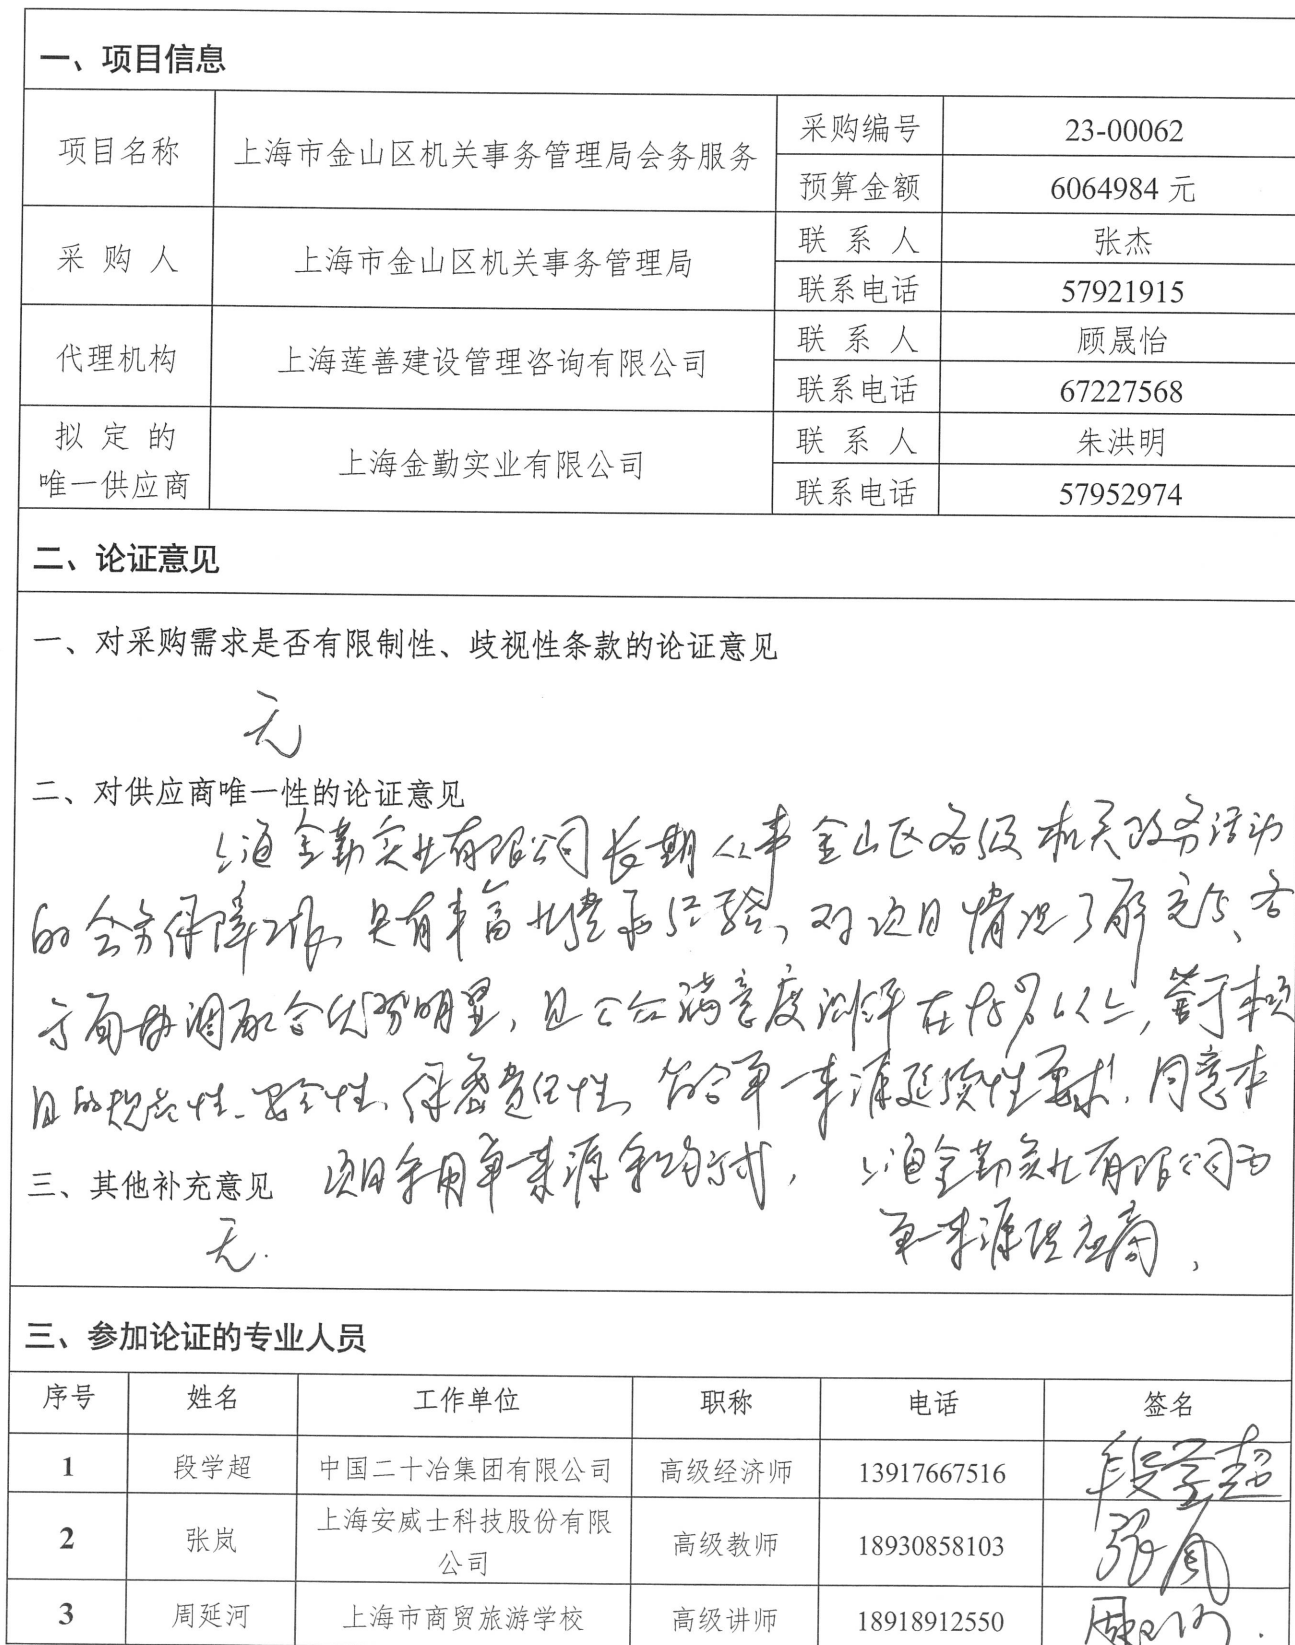 一、项目信息
项目名称 上海市金山区机关事务管理局会务服务 采购编号 23-00062
预算金额 6064984 元
采 购 人 上海市金山区机关事务管理局 联 系 人 张杰
联系电话 57921915
代理机构 上海莲善建设管理咨询有限公司 联 系 人 顾晟怡
联系电话 67227568
拟 定 的 唯一供应商 上海金勤实业有限公司 联 系 人 朱洪明
联系电话 57952974
二、论证意见
一、对采购需求是否有限制性、歧视性条款的论证意见
无
二、对供应商唯一性的论证意见
上海金勤实业有限公司长期从事金山区各级机关政务活动
的会务保障工作,具有丰富经验、对项目情况了解充分、各
方面协调配合优势明显,且满意度测评在95%以上,鉴于本项
目的规范性、安全性、保密责任性,符合单一来源延续性要求,同意本
项目采用单一来源采购方式,上海金勤实业有限公司为
单一来源供应商,
三、其他补充意见
无.
三、参加论证的专业人员
序号 姓名 工作单位 职称 电话 签名
1 段学超 中国二十冶集团有限公司 高级经济师 13917667516 段学超
2 张岚 上海安威士科技股份有限公司 高级教师 18930858103 张岚
3 周延河 上海市商贸旅游学校 高级讲师 18918912550 周延河